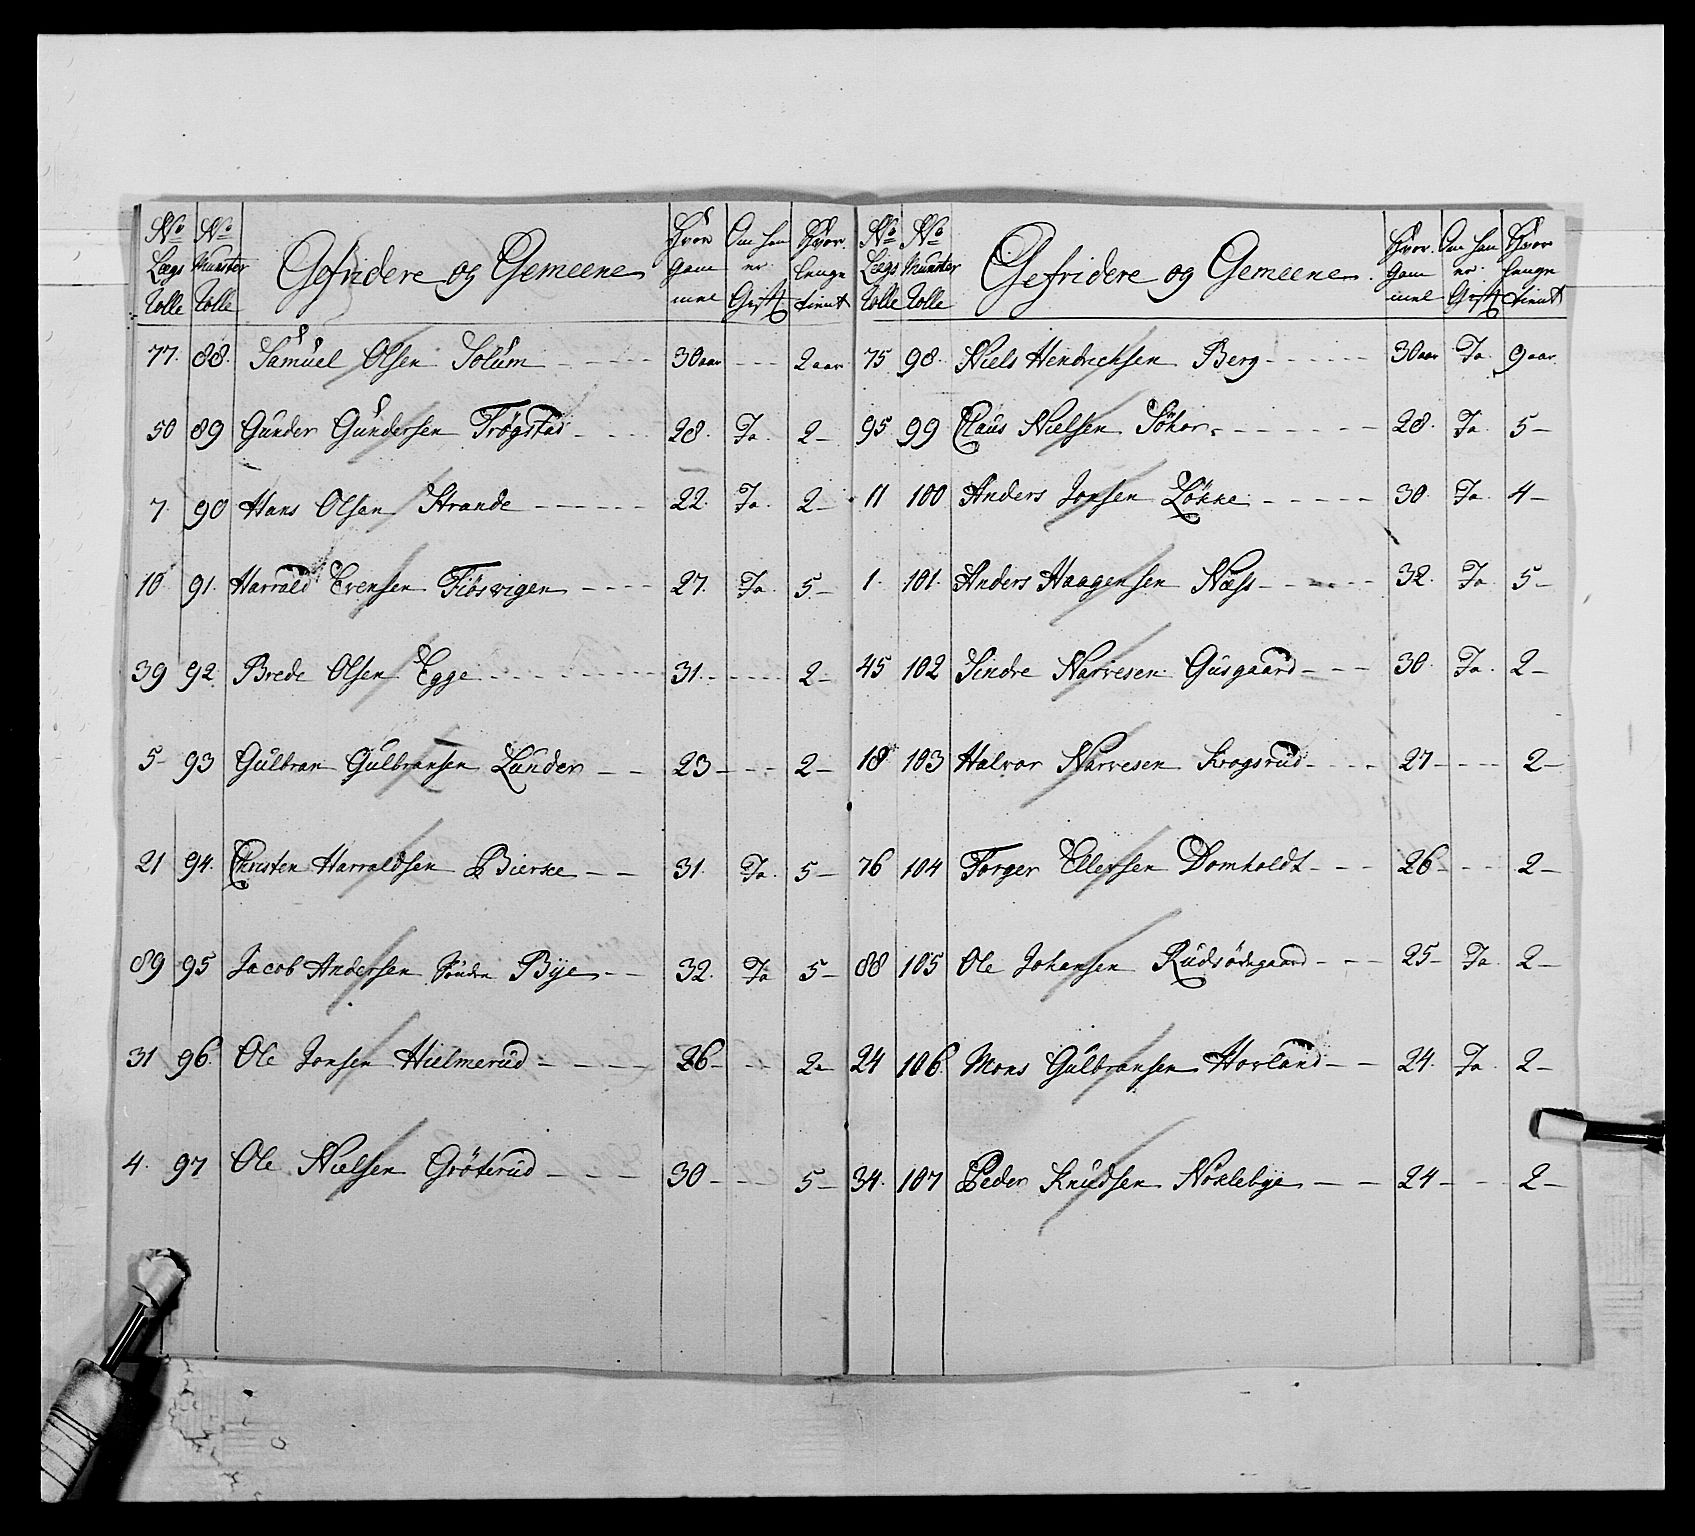 No Lægs Rolle | No Munster Rolle | Gefridere og Gemeene | Hvor gammel | Om han er Gift | Hvor lenge tient
77. 88. Samuel Olsen Solum 30 aar --- 2 aar
50 89 Gunder Gundersen Trøgstad 28. Ja. 2
7. 90 Hans Olsen Strande 22. Ja. 2
10. 91. Harrald Evensen Fiøsvigen 27. Ja. 5
39 92. Brede Olsen Egge 31. --- 2
5 93 Gulbran Gulbransen Lunder 23 --- 2
21 94. Christen Harraldsen Bierke 31. Ja. 5
89 95 Jacob Andersen Søndre Bye 32. Ja 5
31 96. Ole Jonsen Hielmerud 26 --- 2
4. 97 Ole Nielsen Grøterud 30 --- 5
No Lægs Rolle | No Munster Rolle | Gefridere og Gemeene | Hvor gammel | Om han er Gift | Hvor lenge tient
75 98. Niels Hendrichsen Berg 30 aar Ja 9 aar
95 99 Claus Nielsen 28. Ja. 5
11 100 Anders Jonsen Løkke 30. Ja. 4
1. 101. Anders Haagensen Næss 32. Ja. 5
45 102 Sindre Narvesen Gusgaard 30. Ja. 2
18 103 Halvor Narvesen Krogsrud 27 --- 2
76 104 Torger Ellefsen Domholdt 26 --- 2
88 105 Ole Johansen Rudsødegaard 25 Ja. 2
24 106 Mons Gulbransen Hovland 24. Ja. 2
34. 107 Peder Knudsen Nøklebye 24 --- 2